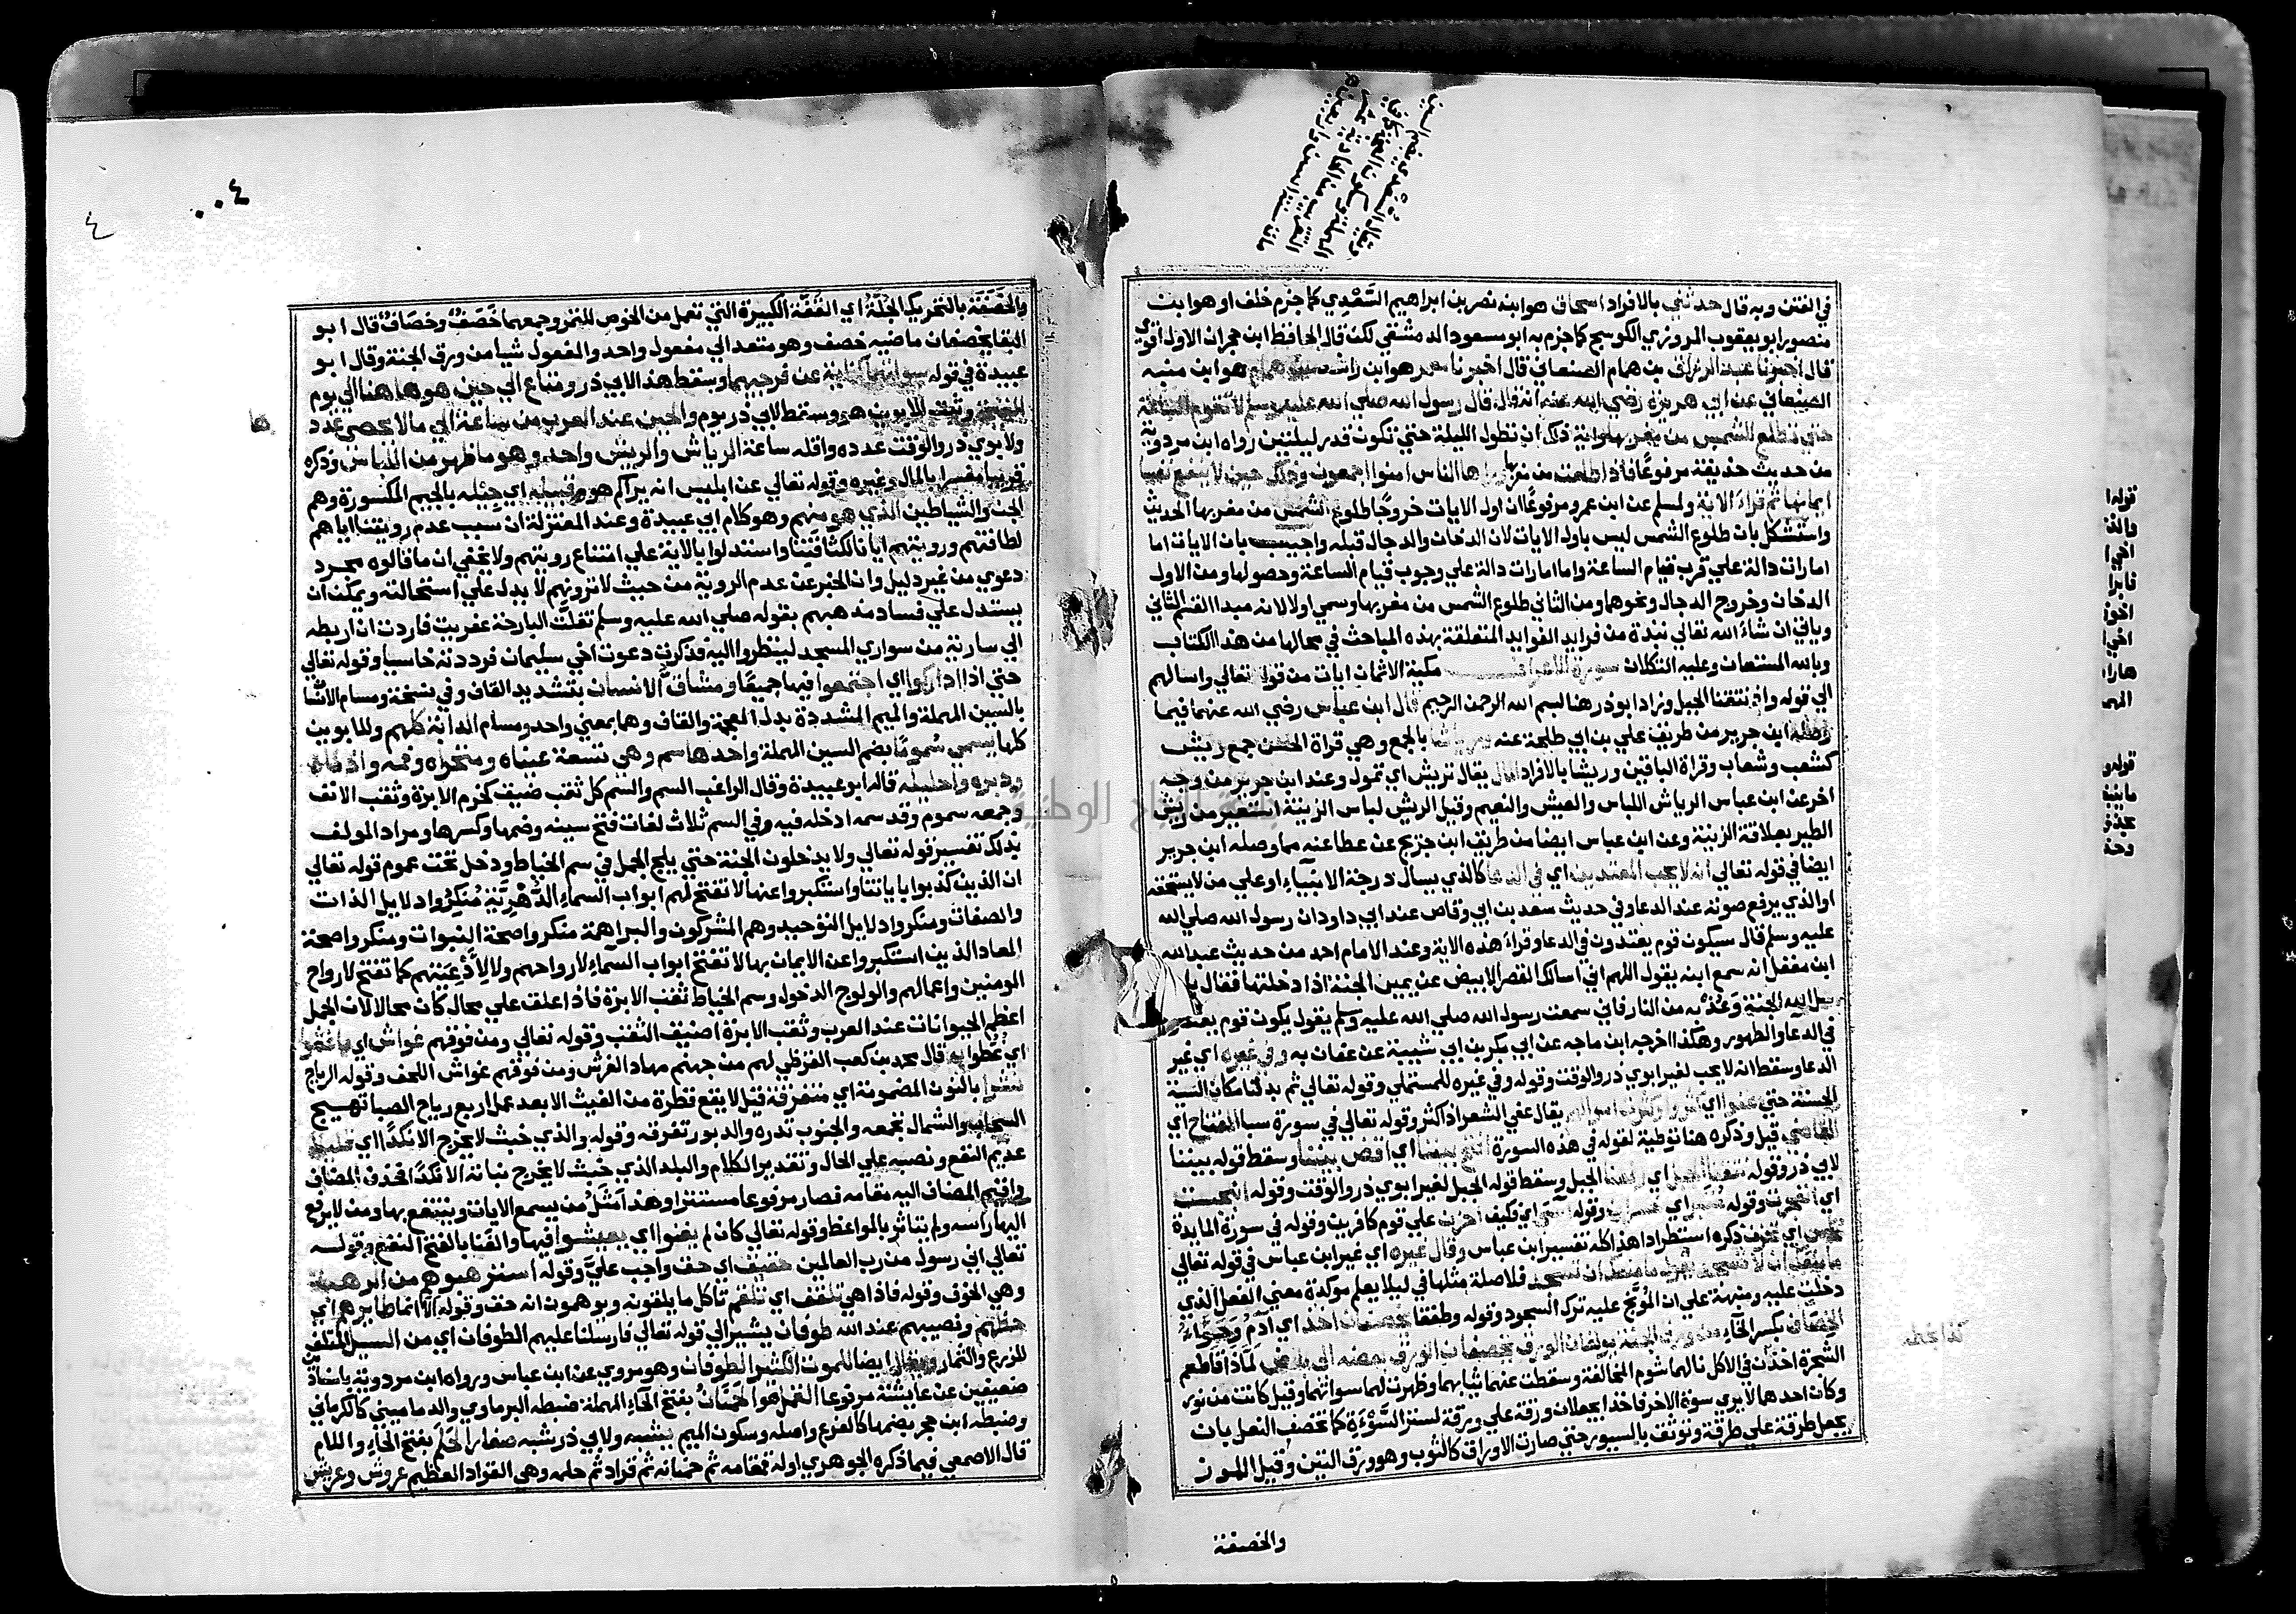 في الفتن وبه قال حدثني بالافراد اسحاق هو ابن نصر بن ابراهيم السَّعْدِي كما جزم خلف او هو ابن
منصور ابو يعقوب المروزي الكوسج كما جزم به ابو مسعود الدمشقي لكن قال الحافظ ابن حجر ان الاول اقوي
قال اخبرنا عبد الرزاق بن همام الصنعاني قال اخبرنا معمر هو ابن راشد عن همام هو ابن منبه
الصنعاني عن ابي هريرة رضي الله عنه انه قال قال رسول الله صلي الله عليه وسلم لا تقوم الساعة
حتي تطلع الشمس من مغربها وانه ذكر ان تطول الليلة حتي تكون قدر ليلتين رواه ابن مردوية
من حديث حذيفة مرفوعًا فاذا طلعت من مغربها وراها الناس امنوا اجمعون وذلك حين لا ينفع نفسا
ايمانها ثم قرأ الاية ولمسلم عن ابن عمرو مرفوعًا ان اول الايات خروجًا طلوع الشمس من مغربها الحديث
واستشكل بان طلوع الشمس ليس باول الايات لان الدخان والدجال قبله واجيب بان الايات اما
امارات دالة علي قرب قيام الساعة واما امارات دالة علي وجوب قيام الساعة وحصولها ومن الاول
الدخان وخروج الدجال ونحوهما ومن الثاني طلوع الشمس من مغربها وسمي اولا لانه مبدا القسم الثاني
وياتي ان شاء الله تعالي نبذة من فرايد الفوايد المتعلقة بهذه المباحث في محالها من هذا الكتاب
وبالله المستعان وعليه التكلان سورة الاعراف مكية الا ثمان ايات من قوله تعالي واسالهم
الي قوله واذ نتقنا الجبل وزاد ابو ذر هنا بسم الله الرحمن الرحيم قال ابن عباس رضي الله عنهما فيما
وصله ابن جرير من طريق علي بن ابي طلحة عنه ورياشا بالجمع وهي قراة الحسن جمع ريش
كشعب وشعاب وقراة الباقين وريشا بالافراد المال يقال تريش اي تمول وعند ابن جرير من وجه
اخر عن ابن عباس الرياش اللباس والعيش والنعيم وقيل الريش لباس الزينة استعير من ريش
الطير بعلاقة الزينة وعن ابن عباس ايضا من طريق ابن جريج عن عطا عنه مما وصله ابن جرير
ايضا في قوله تعالي انه لا يحب المعتدين اي في الدعا كالذي يسال درجة الانبياء او علي من لا يستحقه
او الذي يرفع صوته عند الدعا وفي حديث سعد بن ابي وقاص عند ابي داود ان رسول الله صلي الله
عليه وسلم قال سيكون قوم يعتدون في الدعا وقرأ هذه الاية وعند الامام احمد من حديث عبد الله
ابن مغفل انه سمع ابنه يقول اللهم اني اسالك القصر الابيض عن يمين الجنة اذا دخلتها فقال يا
بني سل الله الجنة وعُذْ به من النار فاني سمعت رسول الله صلي الله عليه وسلم يقول يكون قوم يعتدون
في الدعا والطهور وهكذا اخرجه ابن ماجه عن ابي بكر بن ابي شيبة عن عفان به وفي غيره اي غير
الدعا وسقط انه لا يحب لغير ابوي ذر والوقت وقوله وفي غيره للمستملي وقوله تعالي ثم بدلنا مكان السيئة
الحسنة حتي عفوا اي كثروا وكثرت اموالهم يقال عفي الشعر اذا كثر وقوله تعالي في سورة سبا الفتاح اي
القاضي قيل وذكره هنا توطية لقوله في هذه السورة افتح بيننا اي اقض بيننا وسقط قوله بيننا
لابي ذر وقوله نتقنا الجبل اي رفعنا الجبل وسقط قوله الجبل لغير ابوي ذر والوقت وقوله انبجست
اي انفجرت وقوله متبر اي خسران وقوله آسي اي فكيف احزن علي قوم كافرين وقوله في سورة المايدة
تاس اي تحزن ذكره استطرادا هذا كله تفسير ابن عباس وقال غيره اي غير ابن عباس في قوله تعالي
ما منعك ان لا تسجد يقول ما منعك ان تسجد فلا صلة مثلها في ليلا يعلم موكدة معني الفعل الذي
دخلت عليه ومنبهة علي ان المُوَبَّخ عليه ترك السجود وقوله وطفقا يخصفان اخذا اي آدم وحَوَّاءُ
الخِصَاف بكسر الخاء من ورق الجنة يولفان الورق يخصفان الورق بعضه الي بعض لمَّا ذاقا طعم
الشجرة اخذت في الاكل نالهما شوم المخالفة وسقطت عنهما ثيابهما وظهرت لهما سواتهما وقيل كانت من نور
وكان احدهما لا يري سوة الاخر فاخذا يجعلان ورقة علي ورقة لستر السَّوْءَة كما تخصف النعل بان
يجعل طرقة علي طرقة وتوثق بالسيور حتي صارت الاوراق كالثوب وهو ورق التين وقيل الموز
والخصفة
٠٠٤
٤
والخَصَفَة بالتحريك الجُلَّةُ اي القُفَّة الكبيرة التي تعمل من الخوص للتمر وجمعها خَصَفٌ وخِصَافٌ قال ابو
البقا يخصفان ماضيه خصف وهو متعد الي مفعول واحد والمفعول شيا من ورق الجنة وقال ابو
عبيدة في قوله سواتهما كناية عن فرجيهما وسقط هذا لابي ذر ومتاع الي حين هو هاهنا الي يوم
القيمة وثبت للابوين هو وسقط لابي ذر يوم والحين عند العرب من ساعة الي مالا يحصي عدد
ولابوي ذر والوقت عدده واقله ساعة الرياش والريش واحد وهو ما ظهر من اللباس وذكره
قريبا مفسرا بالمال وغيره وقوله تعالي عن ابليس انه يراكم هو وقبيله اي جيله بالجيم المكسورة وهم
الجن والشياطين الذي هو منهم وهو كلام ابي عبيدة وعند المعتزلة ان سبب عدم رويتنا اياهم
لطافتهم ورويتهم ايانا لكثافتنا واستدلوا بالاية علي امتناع رويتهم ولا يخفي ان ما قالوه مجرد
دعوي من غير دليل وان الخبر عن عدم الروية من حيث لا ترونهم لا يدل علي استحالته ويمكن ان
يستدل علي فساد مذهبهم بقوله صلي الله عليه وسلم تفلت البارحة عفريت فاردت ان اربطه
الي سارية من سواري المسجد لينظروا اليه فذكرت دعوت اخي سليمان فرددته خاسيا وقوله تعالي
حتي اذا اداركوا اي اجتمعوا فيها جميعًا ومشاقُّ الانسان بتشديد القاف وفي نسخة ومسام الانسان
بالسين المهملة والميم المشددة بدل المعجمة والقاف وهما بمعني واحد ومسام الدابة كلهم وللابوين
كلها يسمي سُمومًا بضم السين المهملة واحدها سم وهي تسعة عيناه ومنخراه وفمه واذناه
ودبره واحليله قاله ابو عبيدة وقال الراغب السم والسم كل ثقب ضيق كخرم الابرة وثقب الانف
وجمعه سموم وقد سمه ادخله فيه وفي السم ثلاث لغات فتح سينه وضمها وكسرها ومراد المولف
بذلك تفسير قوله تعالي ولا يدخلون الجنة حتي يلج الجمل في سم الخياط ودخل تحت عموم قوله تعالي
ان الذين كذبوا باياتنا واستكبروا عنها لا تفتح لهم ابواب السماء الدَّهْرِيَّة مُنكِرُوا دلايل الذات
والصفات ومنكروا دلايل التوحيد وهم المشركون والبراهمة منكروا صحة النبوات ومنكروا صحة
المعاد الذين استكبروا عن الايمان بها لا تفتح ابواب السماء لارواحهم ولا لِأَدْعِيَتِهم كما تفتح لارواح
المومنين واعمالهم والولوج الدخول وسم الخياط ثقب الابرة فاذا علق علي محال كان محالا لان الجمل
اعظم الحيوانات عند العرب وثقب الابرة اضيق الثقب وقوله تعالي ومن فوقهم غواش اي ما غشوا
اي غُطوا به قال محمد بن كعب القرظي لهم من جهنم مهاد الفرش ومن فوقهم غواش اللحف وقوله الرياح
نشرا بالنون المضمومة اي متفرقة قيل لا يقع قطرة من الغيث الا بعد عمل اربع رياح الصبا تهيج
السحاب والشمال تجمعه والجنوب تدره والدبور تفرقه وقوله والذي خبث لا يخرج الا نكدًا اي قليلا
عديم النفع ونصبه علي الحال وتقدير الكلام والبلد الذي خبث لا يخرج نباته الا نكدًا فحذف المضاف
واقيم المضاف اليه مقامه فصار مرفوعا مستترا وهذا مَثَلُ من يسمع الايات وينتفع بها ومن لا يرفع
اليها راسه ولم يتاثر بالمواعظ وقوله تعالي كان لم يغنوا اي يعيشوا فيها والغَنا بالفتح النفع وقوله
تعالي اني رسول من رب العالمين حقيق اي حق واجب عليَّ وقوله استرهبوهم من الرهبة
وهي الخوف وقوله فاذا هي تلقف اي تلقم تاكل ما يلقونه ويوهمون انه حق وقوله الا انما طايرهم اي
حظهم ونصيبهم عند الله طوفان يشير الي قوله تعالي فارسلنا عليهم الطوفان اي من السيل المتلف
للزرع والثمار ويقال ايضا للموت الكثير الطوفان وهو مروي عن ابن عباس ورواه ابن مردوية باسنادين
ضعيفين عن عايشة مرفوعا القمل هو الحَمْنَانُ بفتح الحاء المهملة ضبطه البرماوي والدماميني كالكرماني
وضبطه ابن حجر بضمها كالفرع واصله وسكون الميم يشبه ولابي ذر شبه صغار الحَلَم بفتح الحاء واللام
قال الاصمعي فيما ذكره الجوهري اوله قمقامه ثم حمنانه ثم قراد ثم حلمه وهي القراد العظيم عروش وعريش